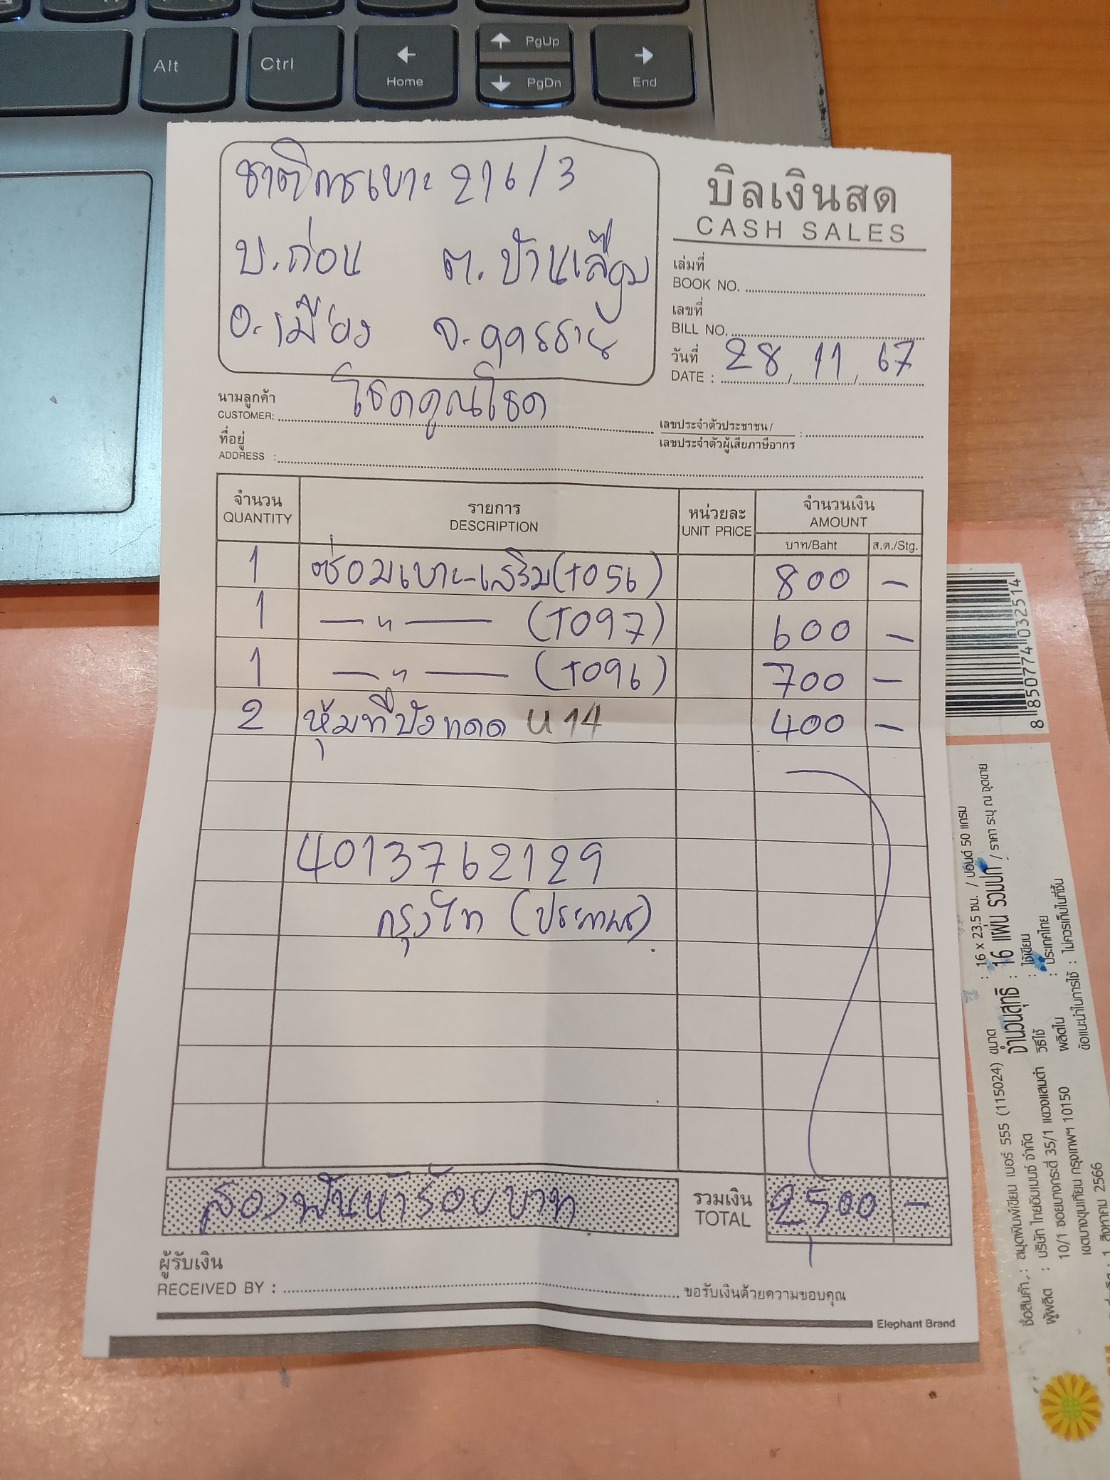 Alt
Ctrl
Home
PgUp
PgDn
End
ชาติการเบาะ 216/3
บ.ถ่อน ต.บ้านเลื่อม
อ.เมือง จ.อุดรธานี
บิลเงินสด
CASH SALES
เล่มที่
BOOK NO.
เลขที่
BILL NO.
วันที่
DATE : 28, 11, 67
นามลูกค้า
CUSTOMER: โชคคูณโชค
เลขประจำตัวประชาชน/
เลขประจำตัวผู้เสียภาษีอากร :
ที่อยู่
ADDRESS :
จำนวน รายการ หน่วยละ จำนวนเงิน
QUANTITY DESCRIPTION UNIT PRICE AMOUNT
บาท/Baht ส.ต./Stg.
1 ซ่อมเบาะ-เสริม(T056) 800 -
1 —"— (T097) 600 -
1 —"— (T096) 700 -
2 หุ้มที่บังแดด U14 400 -
4013762129
กรุงไทย (ประภาพร)
สองพันห้าร้อยบาท
รวมเงิน
TOTAL 2500 -
ผู้รับเงิน
RECEIVED BY :
ขอรับเงินด้วยความขอบคุณ
Elephant Brand
8 850774 032514
ชื่อสินค้า : สมุดพิมพ์เขียน เบอร์ 555 (115024) ขนาด : 16 x 23.5 ซม. / ปอนด์ 50 แกรม
ผู้ผลิต : บริษัท ไทยอัมเบนซ์ จำกัด จำนวนสุทธิ : 16 แผ่น รวมปก / ราคา ระบุ ณ จุดขาย
10/1 ซอยบางกระดี่ 35/1 แขวงแสมดำ วิธีใช้ : ใช้เขียน
เขตบางขุนเทียน กรุงเทพฯ 10150 ผลิตใน : ประเทศไทย
1 สิงหาคม 2566 ข้อแนะนำในการใช้ : ไม่ควรเก็บในที่ชื้น